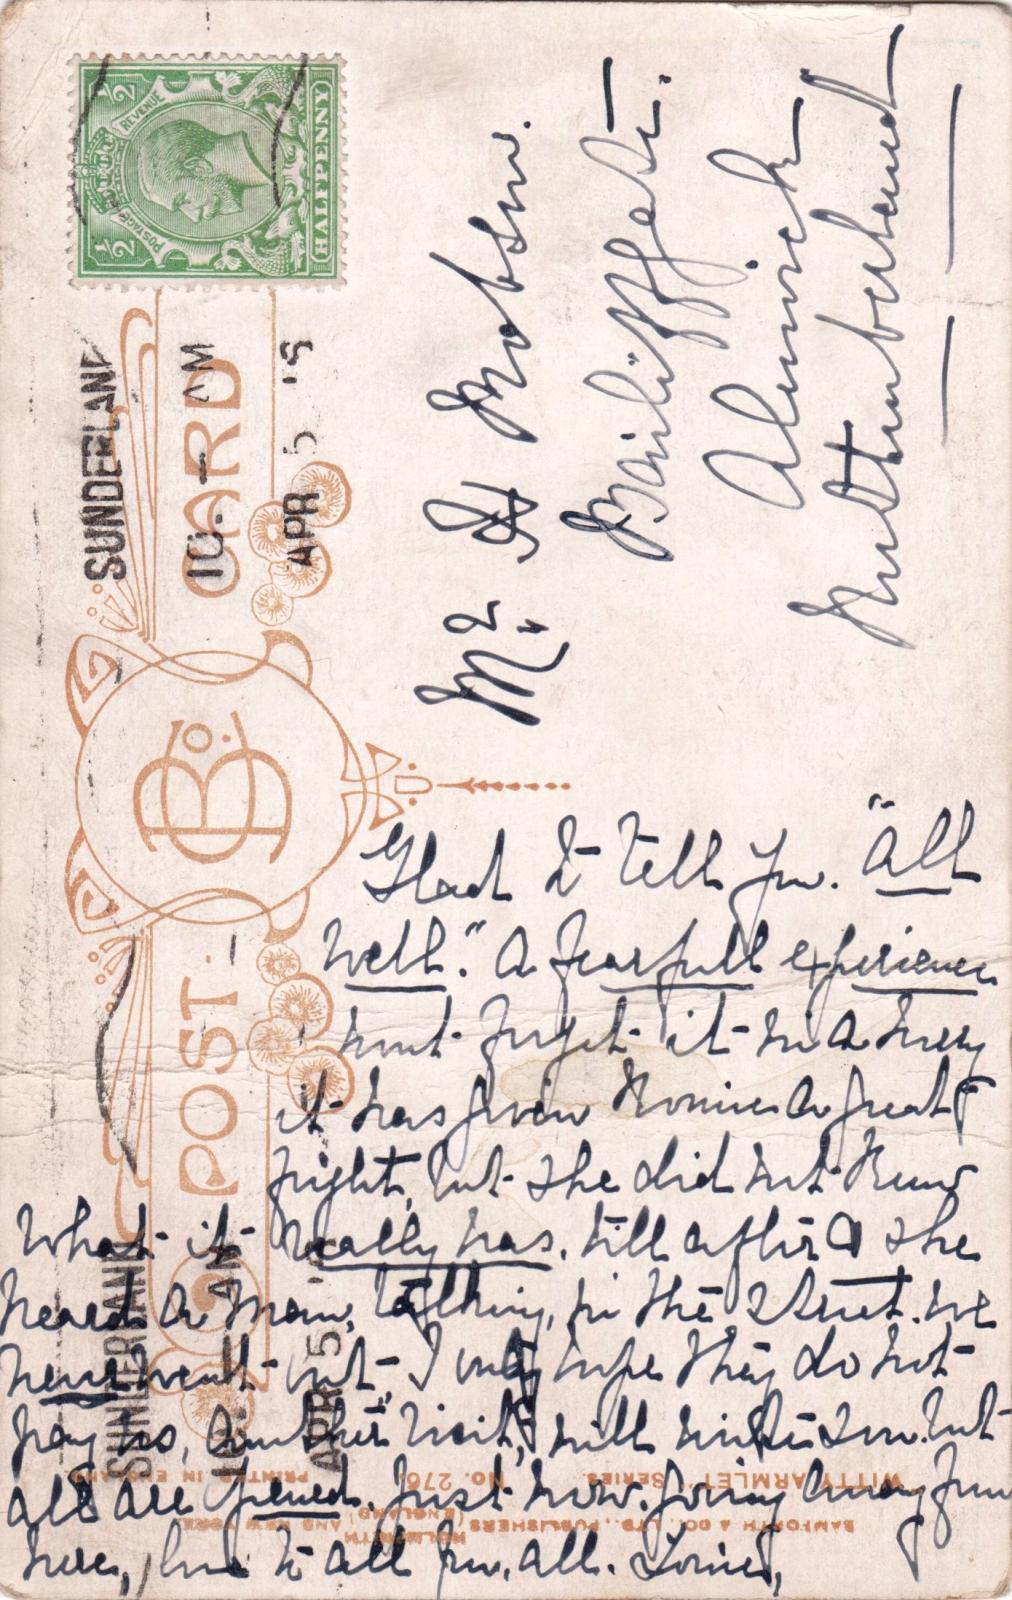 POSTAGE REVENUE
½ ½
HALFPENNY
SUNDERLAND
10 - AM
APR 5
POST CARD
B & Co.
SUNDERLAND
10 AM
APR 5
Mr
Bailiffgate.
Alnwick
Northumberland
Glad to tell you. "All
Well." A fearfull experience
wont forget it in a hurry
it has given a great
fright, but she did not know
What it really was. till after she
heard a man, talking, in the street. we
never went out, I only hope they do not
pay us, another "visit," will write soon. but
all are just now. going away from
here, love to all you. all.
"WITTY ARMLET" SERIES. No. 276
PRINTED IN ENGLAND
BAMFORTH & CO., LTD., PUBLISHERS, HOLMFIRTH (ENGLAND) AND NEW YORK